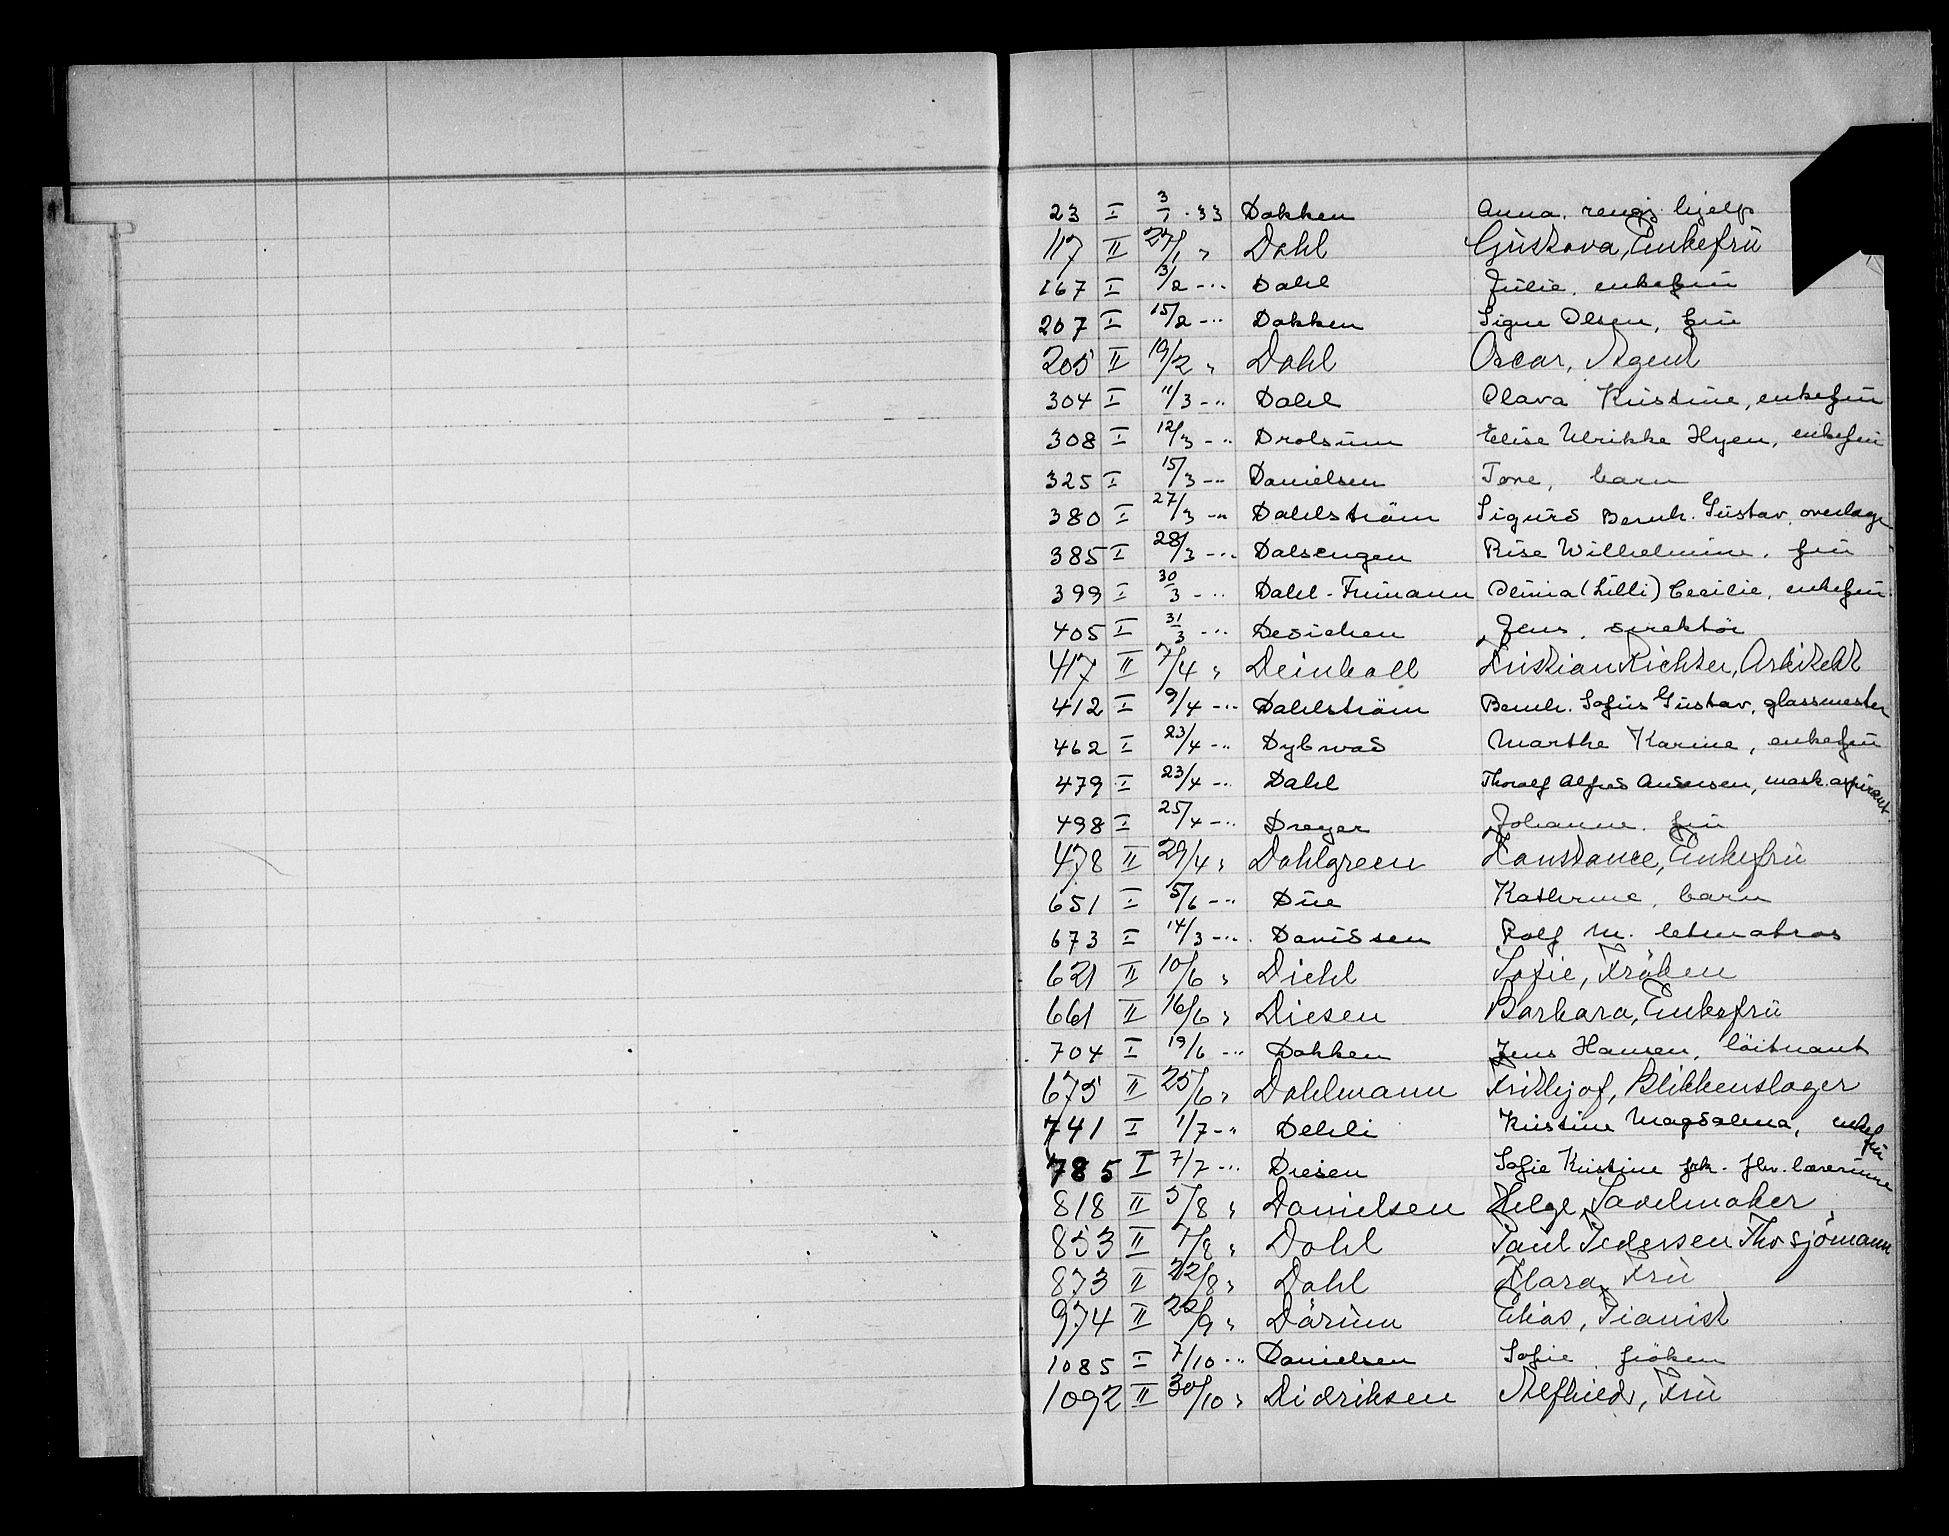 23 I 3/1 . 33 Dokken Anna, rengj. hjelp
117 II 27/1 " Dahl Gustava, Enkefrü
167 I 3/2 - " Dahl Julie, enkefrü
207 I 15/2 - " Dokken Signe Olsen, frü
205 II 19/2 " Dahl Oscar, Agent
304 I 11/3 - " Dahl Olava Kristine, enkefrü
308 I 12/3 - " Drolsum Elise Ulrikke Hyen, enkefrü
325 I 15/3 - " Danielsen Tore, barn
380 I 27/3 - " Dahlström Sigurd Bernh. Güstav, overlage
385 I 28/3 - " Dalsengen Rise Wilhelmine, frü
399 I 30/3 - " Dahl-Frimann Olivia (Lilli) Cecilie, enkefrü
405 I 31/3 - " Desichen Jens, direktör
417 II 7/4 " Deinboll Kristian Richter, Arkitekt
412 I 9/4 - " Dahlström Bernh. Sofus Güstav, glassmester
462 I 23/4 - " Dybwad Marthe Karine, enkefrü
479 I 23/4 - " Dahl Thoralf Alfred Andersen, mask.aspirant
498 I 25/4 - " Dreyer Johanne, frü
478 II 29/4 " Dahlgreen Konstance, Enkefrü
651 I 5/6 - " Düe Kathrine, barn
673 I 14/3 - " Davidsen Rolf M. letmatros
621 II 10/6 " Diehl Sofie, Fröken
661 II 16/6 " Diesen Barbara, Enkefrü
704 I 19/6 - " Dokken Jens Hansen, löitnant
675 II 25/6 " Dahlmann Frithjof, Blikkenslager
741 I 1/7 - " Dehli Kristine Magdalena, enkefrü
785 I 7/7 - " Diesen Sofie Kristine frk. fhv. lærerinne
818 II 5/8 " Danielsen Helge, Sadelmaker
853 II 7/8 " Dahl Paul Pedersen Thv sjömann
873 II 22/8 " Dahl Klara, Frü
974 II 22/9 " Dårüm Elias, Pianist
1085 I 7/10 - " Danielsen Sofie, fröken
1092 II 30/10 " Didriksen Alfhild, Frü